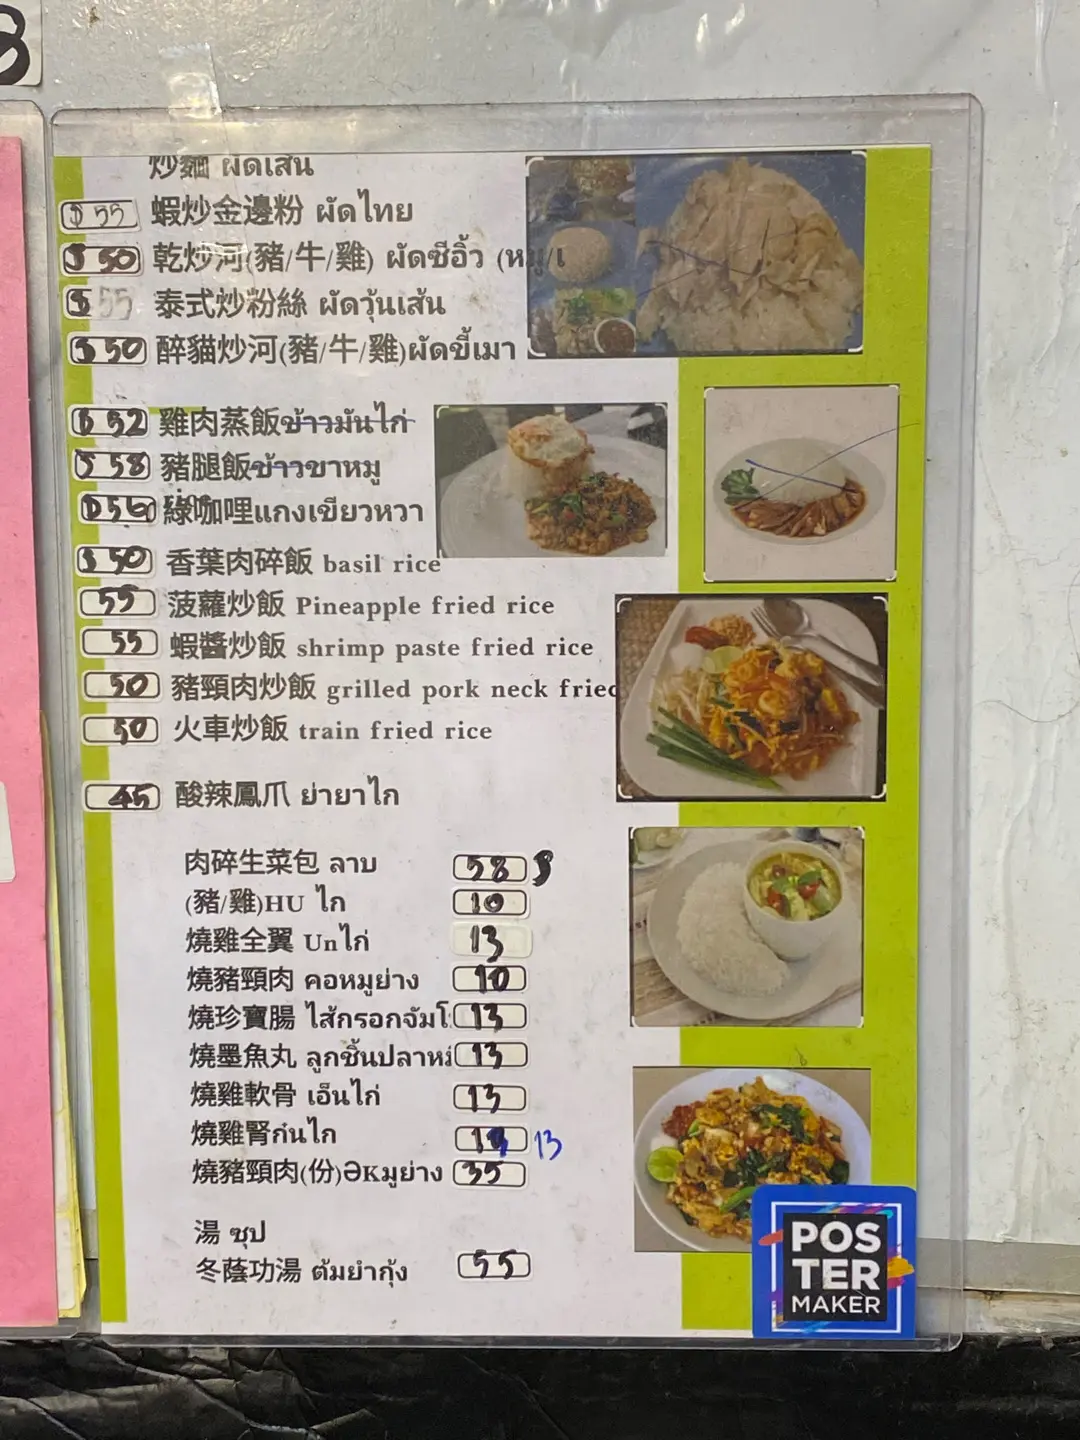 8
炒麵 ผัดเส้น
$ 55 蝦炒金邊粉 ผัดไทย
$ 50 乾炒河(豬/牛/雞) ผัดซีอิ้ว (หมู/เ
$ 55 泰式炒粉絲 ผัดวุ้นเส้น
$ 50 醉貓炒河(豬/牛/雞)ผัดขี้เมา
$ 52 雞肉蒸飯ข้าวมันไก่
$ 58 豬腿飯ข้าวขาหมู
$ 56 綠咖哩แกงเขียวหวา
$ 50 香葉肉碎飯 basil rice
55 菠蘿炒飯 Pineapple fried rice
55 蝦醬炒飯 shrimp paste fried rice
50 豬頸肉炒飯 grilled pork neck fried
50 火車炒飯 train fried rice
45 酸辣鳳爪 ย่ายาไก
肉碎生菜包 ลาบ 58 $
(豬/雞)HU ไก 10
燒雞全翼 Unไก่ 13
燒豬頸肉 คอหมูย่าง 10
燒珍寶腸 ไส้กรอกจัมโ 13
燒墨魚丸 ลูกชิ้นปลาหม 13
燒雞軟骨 เอ็นไก่ 13
燒雞腎ก่นไก 13
燒豬頸肉(份)ƏKมูย่าง 35
湯 ซุป
冬蔭功湯 ต้มยำกุ้ง 55
POS
TER
MAKER